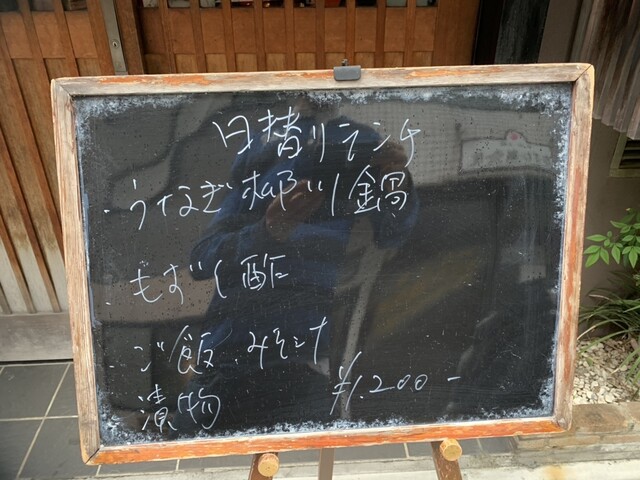 日替りランチ
・うなぎ柳川鍋
・もずく酢
ご飯、みそ汁
漬物 ¥1.200-